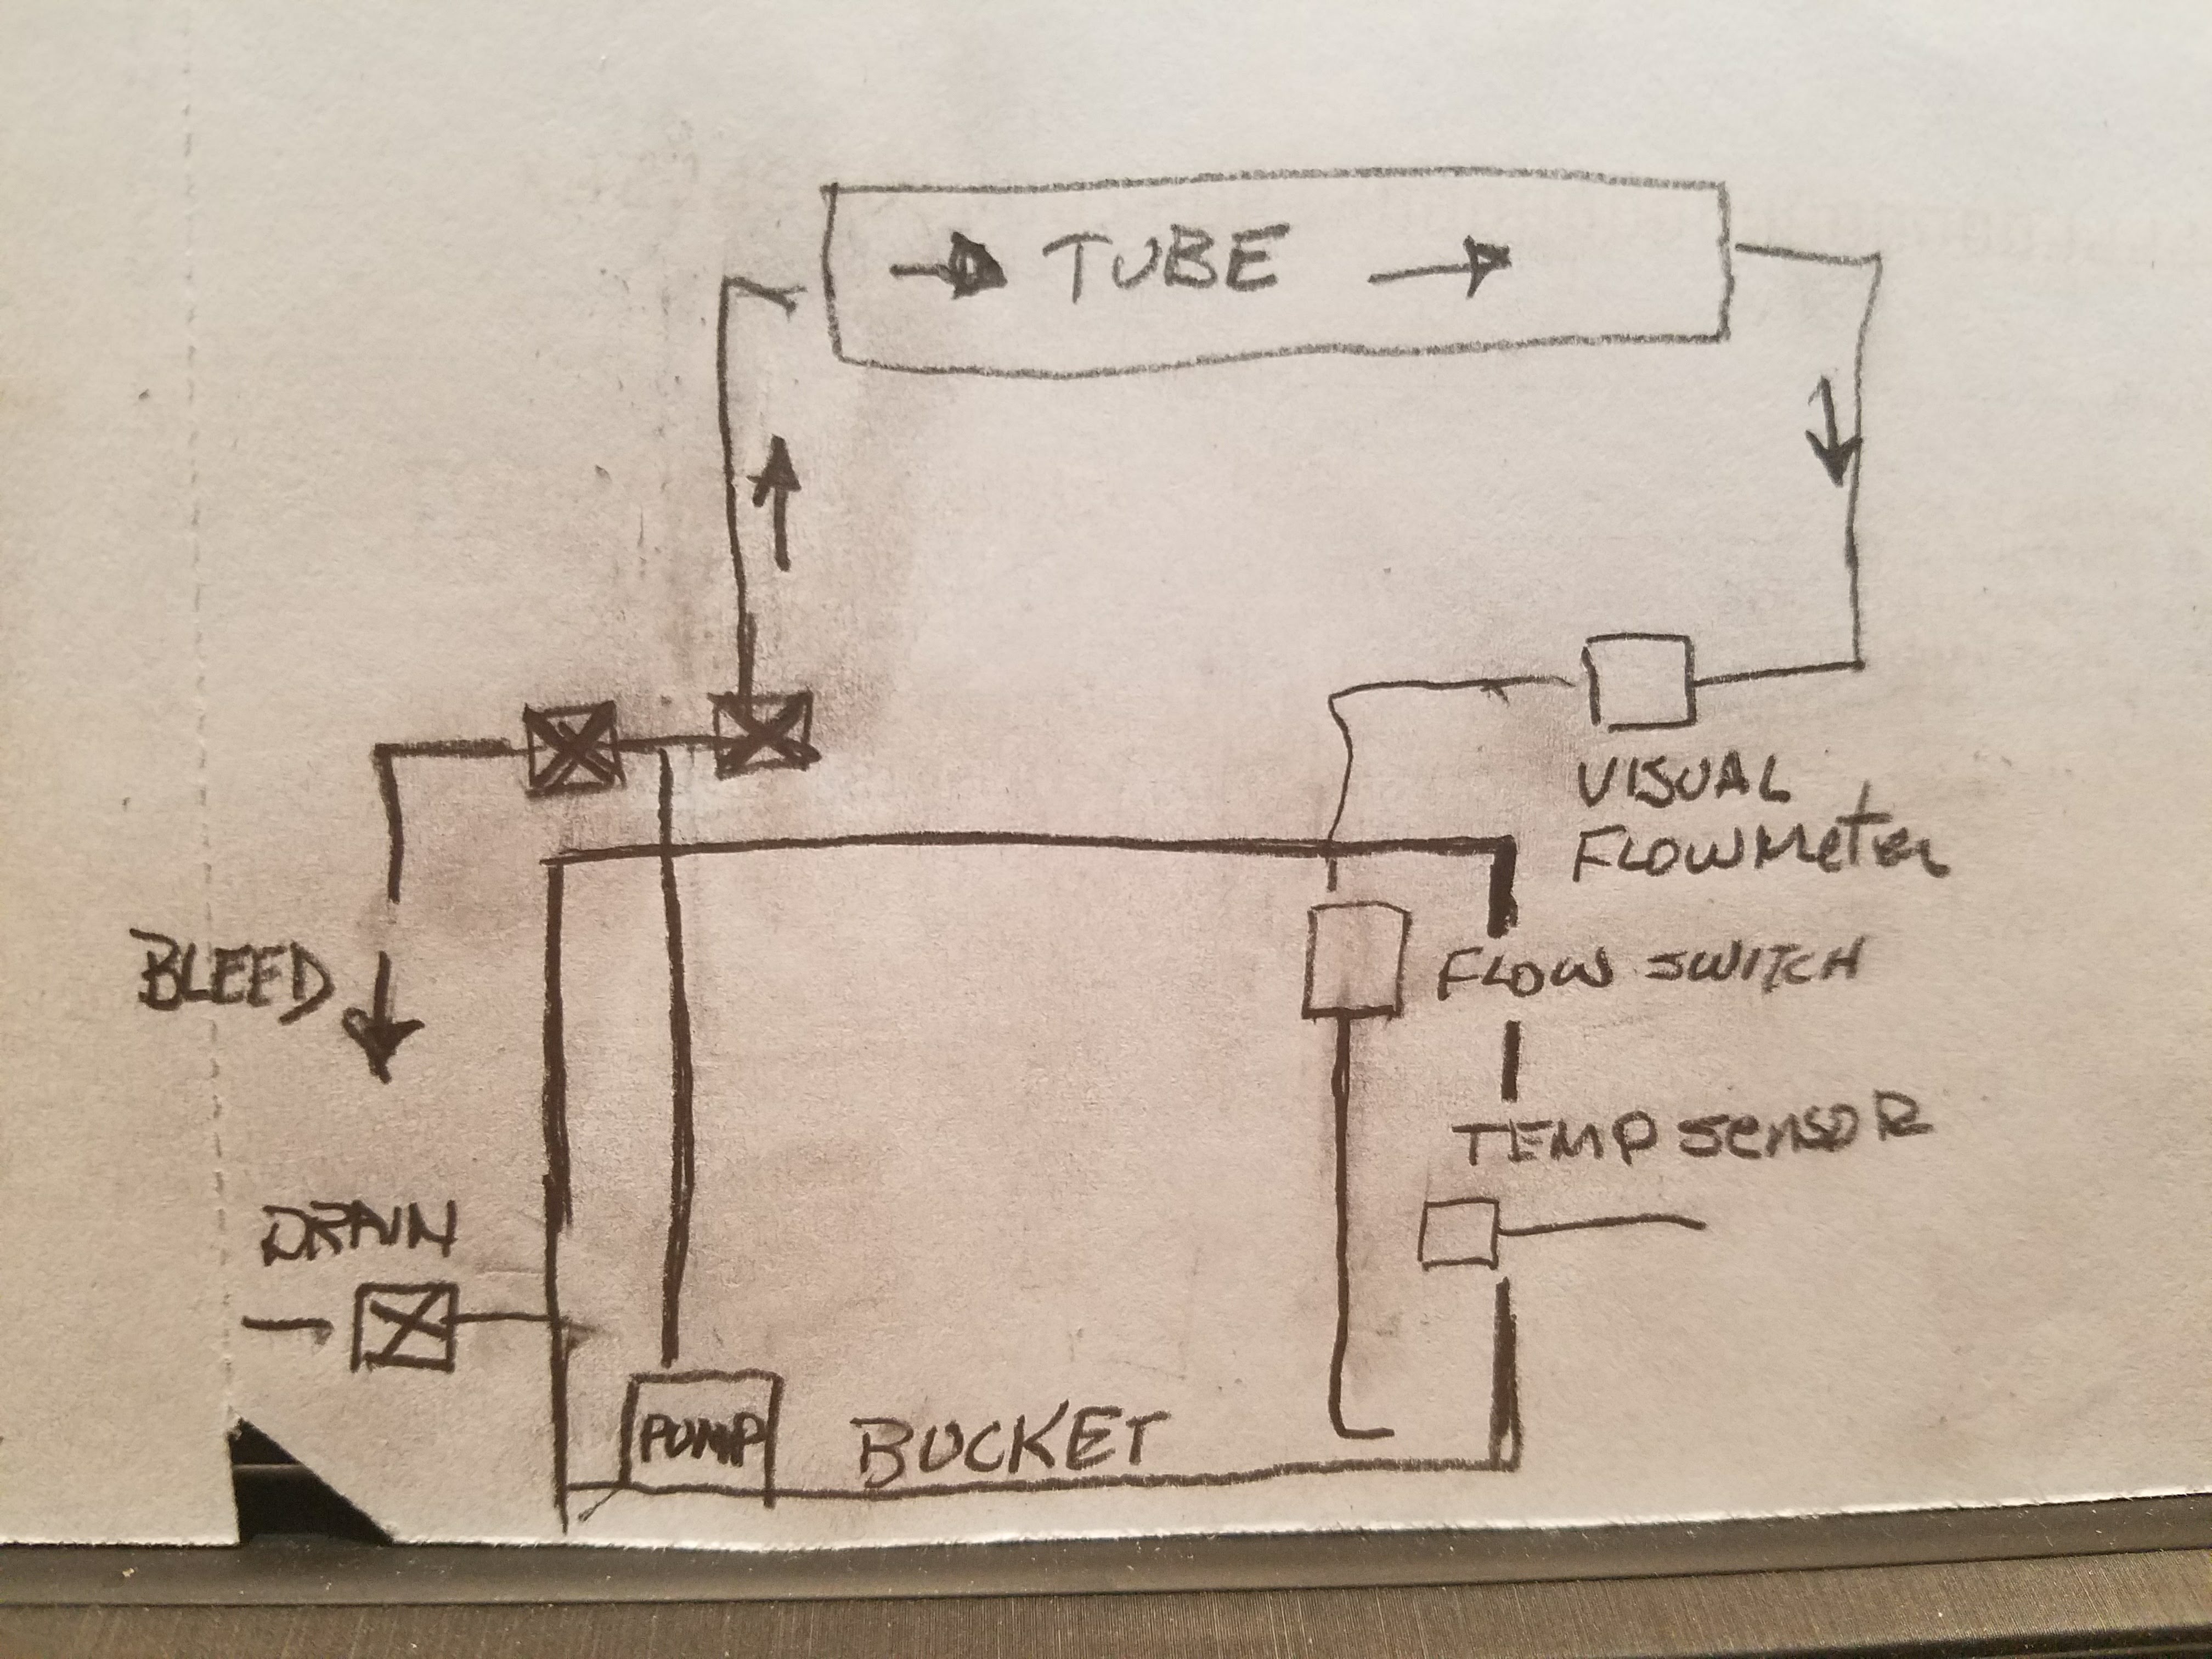 TUBE
VISUAL
FLOWMETER
BLEED
FLOW SWITCH
TEMP SENSOR
DRAIN
PUMP
BUCKET